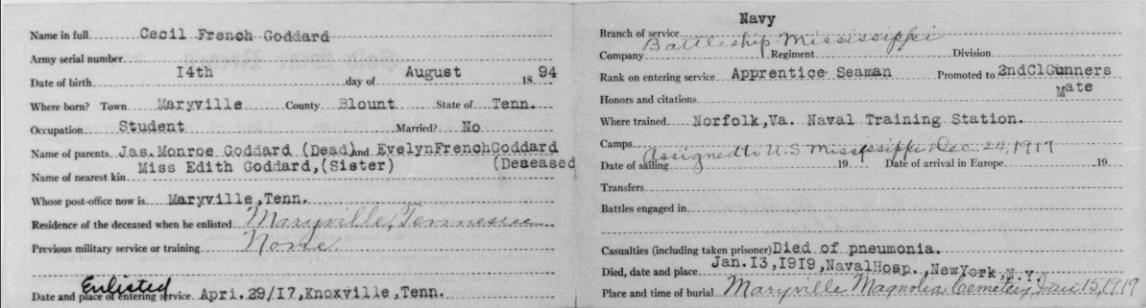 Name in full Cecil French Goddard
Army serial number
Date of birth 14th day of August 18 94
Where born? Town Maryville County Blount State of Tenn.
Occupation Student Married? No
Name of parents Jas. Monroe Goddard (Dead) and Evelyn French Goddard
(Deceased
Name of nearest kin Miss Edith Goddard, (Sister)
Whose post-office now is Maryville, Tenn.
Residence of the deceased when he enlisted Maryville, Tennessee
Previous military service or training None
Enlisted
Date and place of entering service Apri. 29/17, Knoxville, Tenn.
Navy
Branch of service
Battleship Mississippi
Company Regiment Division
Rank on entering service Apprentice Seaman Promoted to 2ndClGunners
Mate
Honors and citations
Where trained Norfolk, Va. Naval Training Station.
Camps
Assigned to U.S Mississippi Dec 24, 1917
Date of sailing 19 Date of arrival in Europe 19
Transfers
Battles engaged in
Casualties (including taken prisoner) Died of pneumonia.
Died, date and place Jan. 13, 1919, Naval Hosp., New York, N.Y.
Place and time of burial Maryville Magnolia Cemetery Jan 15, 1919